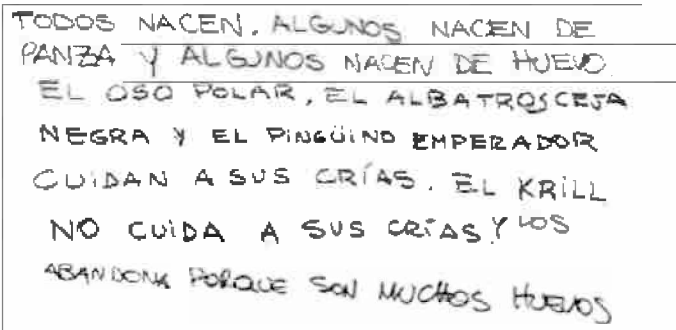 TODOS NACEN. ALGUNOS NACEN DE
PANZA Y ALGUNOS NACEN DE HUEVO
EL OSO POLAR, EL ALBATROS CEJA
NEGRA Y EL PINGÜINO EMPERADOR
CUIDAN A SUS CRÍAS. EL KRILL
NO CUIDA A SUS CRÍAS Y LOS
ABANDONA PORQUE SON MUCHOS HUEVOS